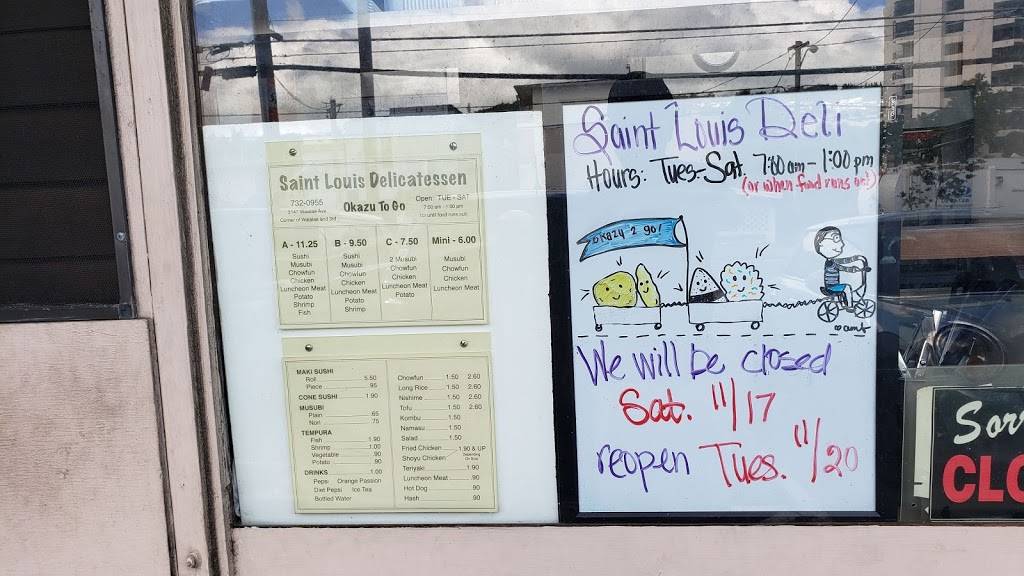 Saint Louis Delicatessen
732-0955
Okazu To Go
Open: TUE - SAT
7:00 am - 1:00 pm
(or until food runs out)
3147 Waialae Ave
Corner of Waialae and 3rd
A - 11.25
Sushi
Musubi
Chowfun
Chicken
Luncheon Meat
Potato
Shrimp
Fish
B - 9.50
Sushi
Musubi
Chowfun
Chicken
Luncheon Meat
Potato
Shrimp
C - 7.50
2 Musubi
Chowfun
Chicken
Luncheon Meat
Potato
Mini - 6.00
Musubi
Chowfun
Chicken
Luncheon Meat
MAKI SUSHI
Roll 5.50
Piece .95
CONE SUSHI 1.90
MUSUBI
Plain .65
Nori .75
TEMPURA
Fish 1.90
Shrimp 1.00
Vegetable .90
Potato .90
DRINKS 1.00
Pepsi Orange Passion
Diet Pepsi Ice Tea
Bottled Water
Chowfun 1.50 2.60
Long Rice 1.50 2.60
Nishime 1.50 2.60
Tofu 1.50 2.60
Kombu 1.50
Namasu 1.50
Salad 1.50
Fried Chicken 1.90 & UP
Shoyu Chicken Depending On Size
Teriyaki 1.90
Luncheon Meat .90
Hot Dog .90
Hash .90
Saint Louis Deli
Hours: Tues-Sat. 7:00 am - 1:00 pm
(or when food runs out)
OKAZU 2 GO!
We will be closed
Sat. 11/17
reopen Tues. 11/20
Sorr
CLO